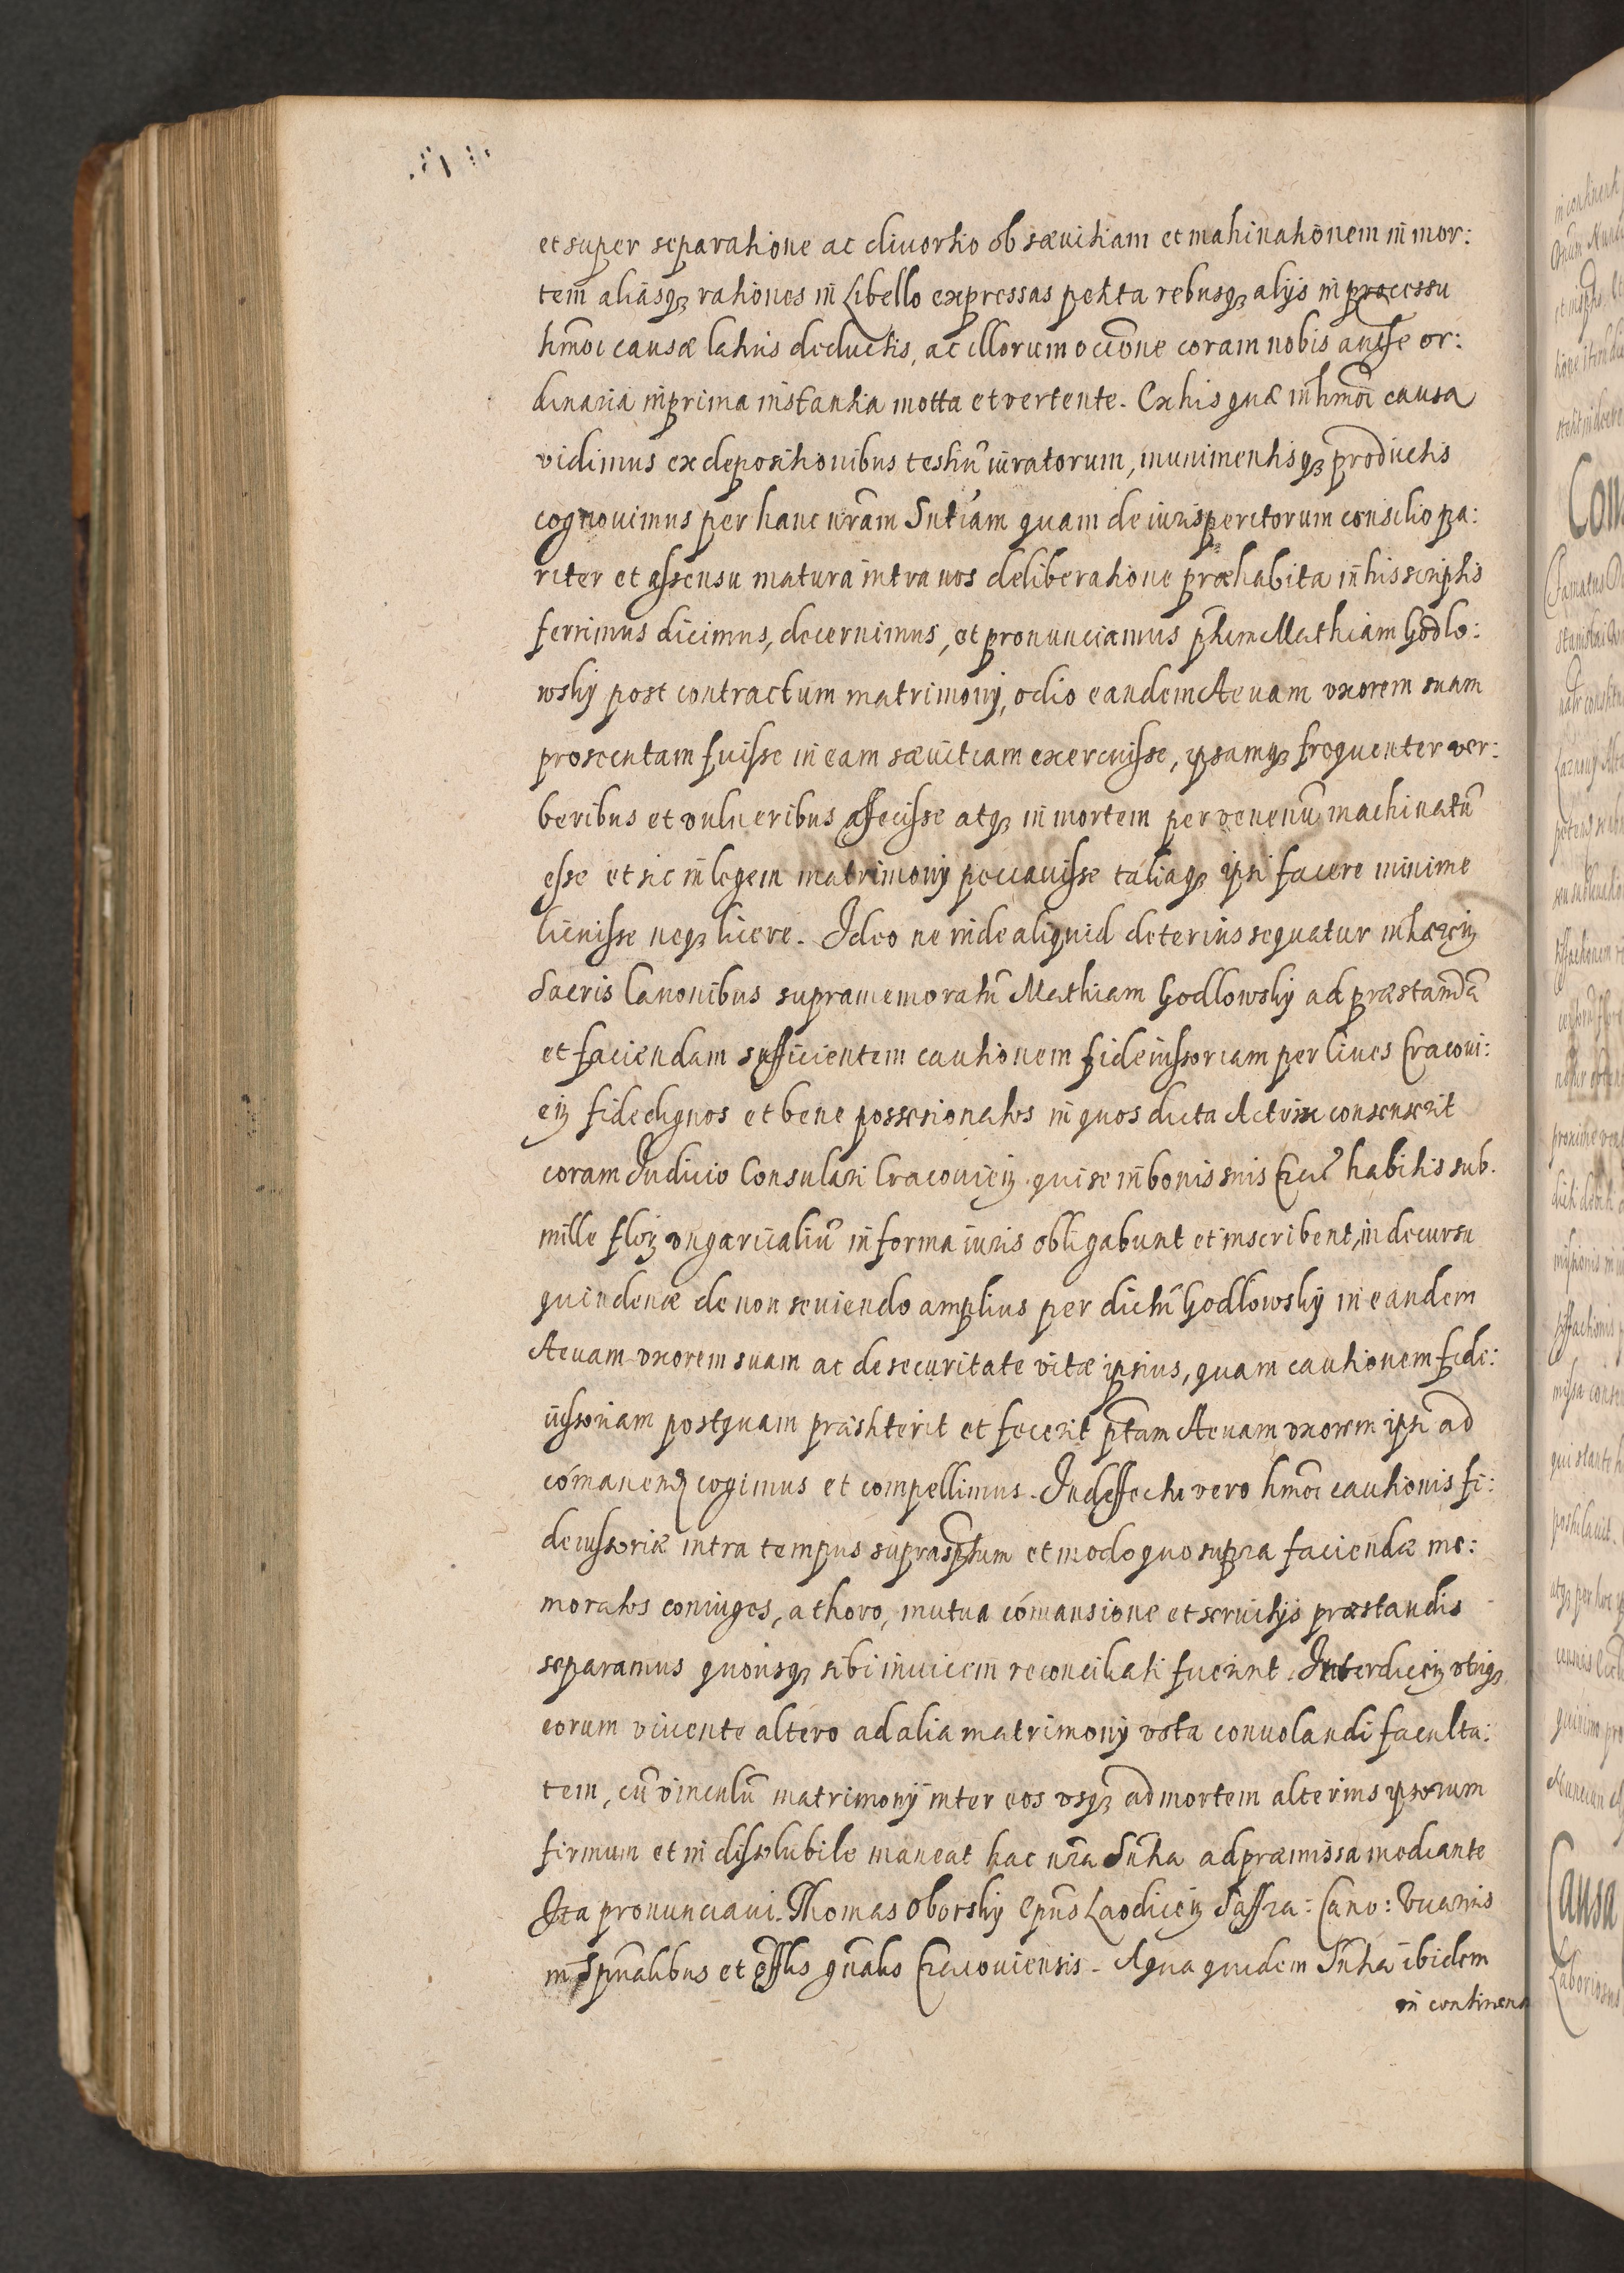 et super separatione ac diuortio ob sæuitiam et mahinationem in mor:
tem aliasqꝫ rationes in Libello expressas petita rebusqꝫ alijs in processu
hmoi causæ latius deductis, ac illorum occõne coram nobis authe or:
dinaria in prima instantia motta et vertente. Ex his quæ in hmoi causa
vidimus ex depositionibus testiũ iuratorum, munimentisqꝫ productis
cognouimus per hanc nrãm Sntiam quam de iurisperitorum consilio pa:
riter et assensu matura intra nos deliberatione præhabita in his scriptis
ferrimus dicimus, decernimus, et pronunciamus Mathiam Godlo:
wskÿ post contractum matrimonij, odio eandem Aeuam vxorem suam
prosecutam fuisse in eam sæuitiam exercuisse, ipsamqꝫ frequenter ver:
beribus et vulneribus affecisse atqꝫ in mortem per venenũ machinatũ
esse et sic in legem matrimonij peccauisse taliaqꝫ ipsi facere minime
licuisse neqꝫ licere. Ideo ne inde aliquid deterius sequatur inhæreñ
Sacris Canonibus supramemoratũ Mathiam Godlowskÿ ad præstandã
et faciendam sufficientem cautionem fideiussoriam per Ciues Cracoui:
eñ fidedignos et bene possesionatos in quos dicta Actrix consenserit
coram Iudicio Consulari Cracouieñ qui se in bonis suis habitis sub
mille floꝝ vngaricaliũ in forma iuris obligabunt et inscribent, in decursu
quindenæ de non seuiendo amplius per dictũ Godlowskÿ in eandem
Aeuam vxorem suam ac de securitate vitæ ipsius, quam cautionem fide:
iussoriam postquam præstiterit et fecerit ptam Aeuam vxorem ipsi ad
cõmanenđ cogimus et compellimus. In deffectu vero hmoi cautionis fi:
deiussoriæ intra tempus suprasptum et modo quo supra faciendæ me:
moratos coniuges, a thoro, mutua cõmansione et seruitijs præstandis
separamus quousqꝫ sibi inuicem reconciliati fuerint. Interdiceñ vtriqꝫ
eorum viuente altero ad alia matrimonij vota conuolandi faculta:
tem, cũ vinculũ matrimonÿ inter eos vsqꝫ ad mortem alterius ipsorum
firmum et indissolubile maneat hac nrã Sntia ad præmissa mediante
Ita pronunciaui. Thomas Oborskÿ Epus Laodiceñ Saffra: Cano: Vicarius
in Spũalibus et gñalis Cracouiensis. A qua quidem Sñtia ibidem
in continen